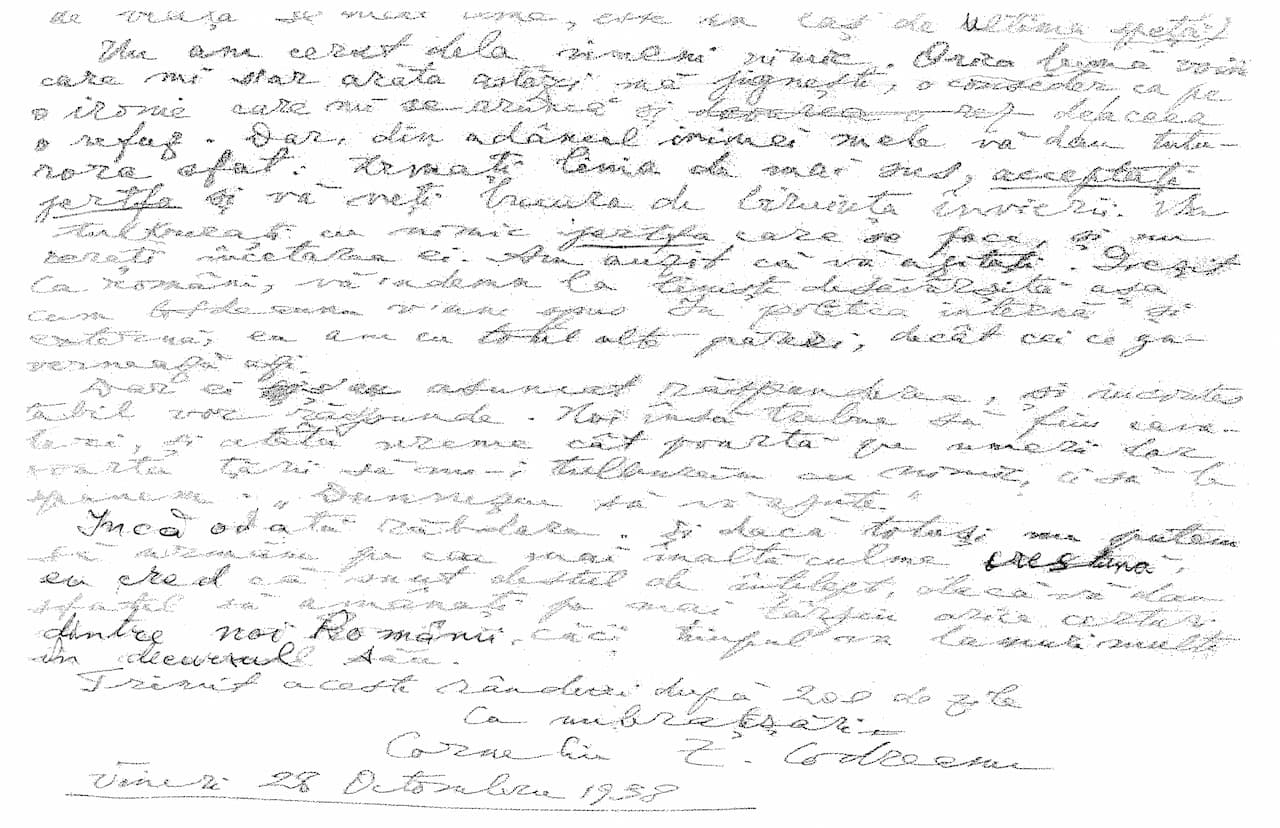 de viață se mai vine, este un caș de ultima speță)
Nu am cerut dela nimeni nimic. Orice bună voință
care mi sar arăta astăzi mă jignește, o consider ca pe
o ironie care nu se aruncă și o ref deaceea
o refuz. Dar, din adâncul inimei mele vă dau tutu-
rora sfat: Urmați linia de mai sus, acceptați
jertfa și vă veți bucura de biruința învierii. Nu
tulburați cu nimic jertfa care se face, și nu
cereți încetarea ei. Am auzit că vă agitați. Greșit
Ca români, vă indemn la liniște desăvârșită așa
cum totdeauna v'am spus In politica internă și
externă, eu am cu totul alte păreri, decât cei ce gu-
vernează azi.
Dar ei și-au asumat răspunderea, și incontes
tabil vor răspunde. Noi însă trebue să fim cava-
leri, și atâta vreme cât poartă pe umeri lor
soarta țării să nu-i tulburăm cu nimic, ci să le
spunem: „Dumnezeu să vă ajute."
Incă odată răbdare. Și dacă totuși nu putem
să urmăm pe cea mai înaltă culme creștină,
eu cred că sunt destul de înțelept, dacă vă dau
sfatul să amânați pe mai târziu orice ceartă
dintre noi Românii, căci timpul va lamuri multe
în decursul său.
Trimit aceste rânduri după 200 de zile
Cu imbrațișări.
Corneliu Z. Codreanu
Vineri 28 Octombrie 1938